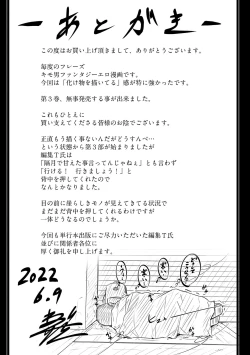 ーあとがきー
この度はお買い上げ頂きまして、ありがとうございます。
毎度のフレーズ
キモ男ファンタジーエロ漫画です。
今回は「化け物を描いてる」感が特に強かったです。
第3巻、無事発売する事が出来ました。
これもひとえに
買い支えてくださる皆様のお陰でございます。
正直もう描く事ないんだがどうすんべ…
という状態から第3部が始まりましたが
編集T氏は
『隔月で甘えた事言ってんじゃねぇ』とも言わず
『行ける！ 行きましょう！』と
背中を押してくれたので
なんとかなりました。
目の前に崖らしきモノが見えてきてる状況で
まだまだ背中を押してくれるわけですが
一体どうなるのでしょうか。
今回も単行本出版にご尽力いただいた編集T氏
並びに関係者各位に
厚く御礼を申し上げます。
2022
6.9